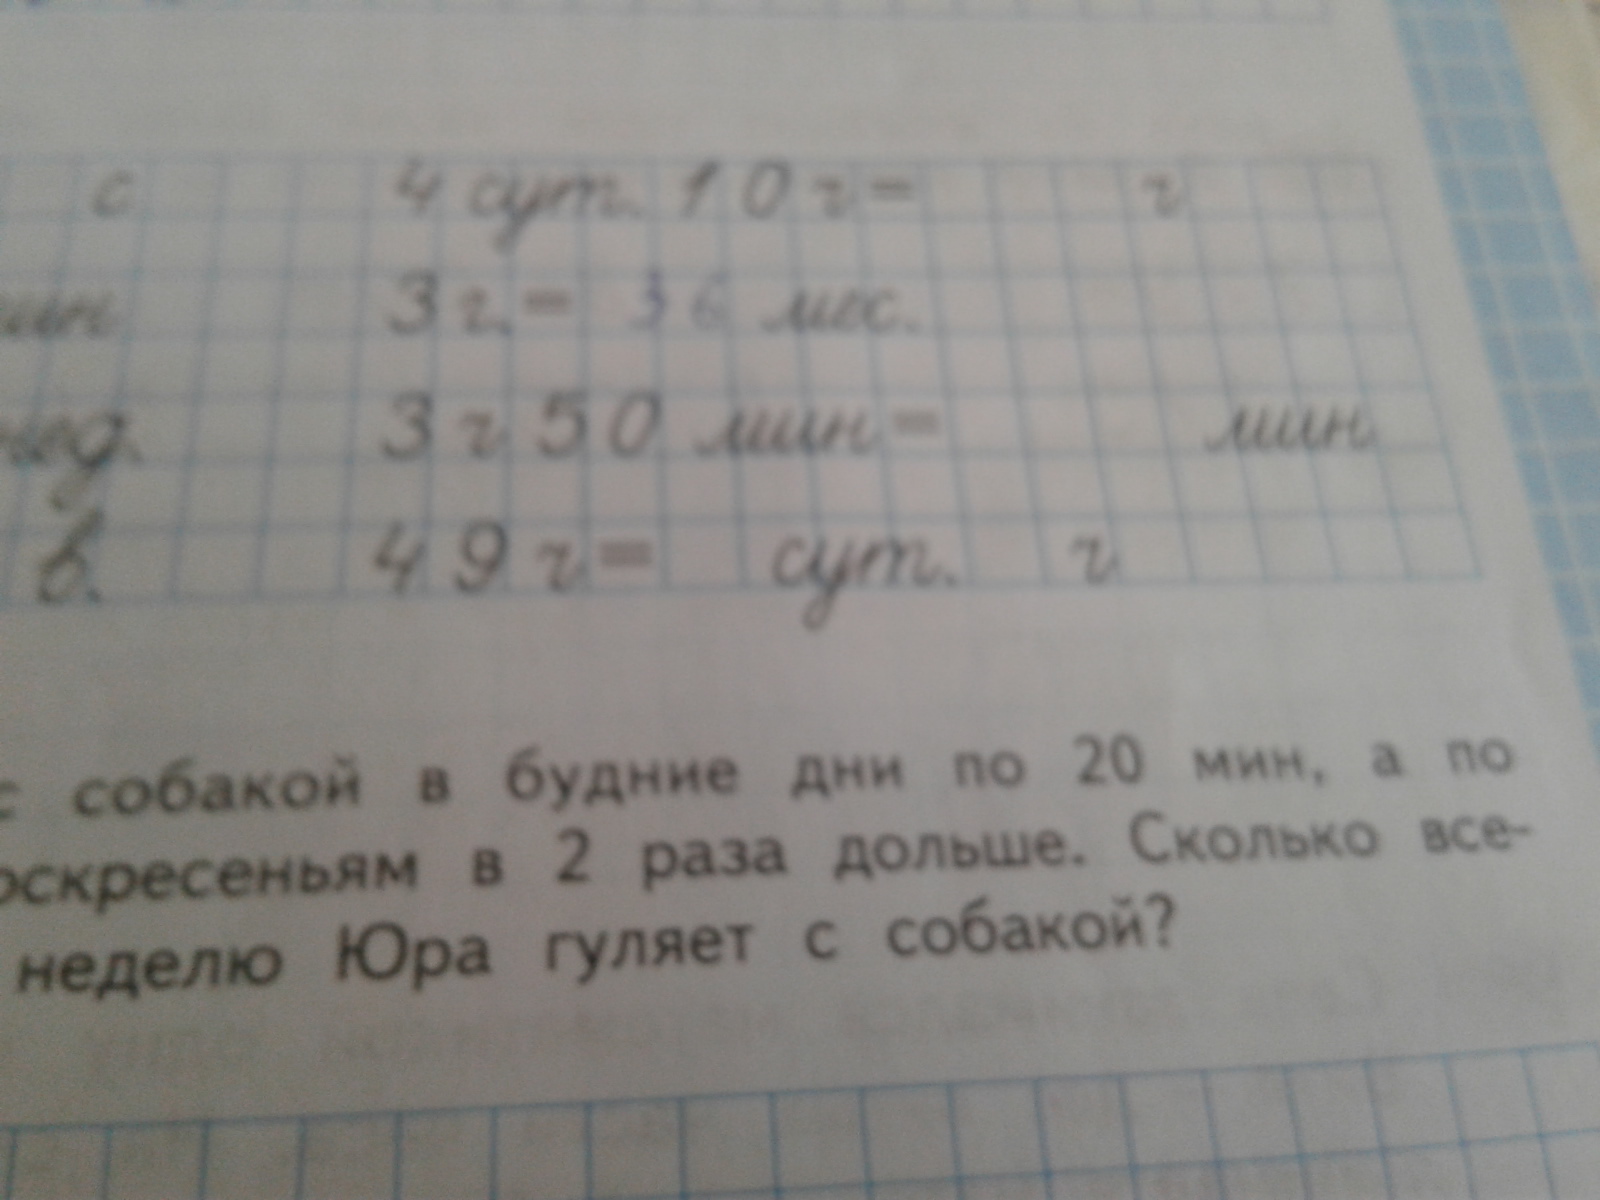 с 4 сут. 10 ч = ч
3 г. = 36 мес.
нед. 3 ч 50 мин = мин
в. 49 ч = сут. ч
с собакой в будние дни по 20 мин, а по
в 2 раза дольше. Сколько все-
неделю Юра гуляет с собакой?